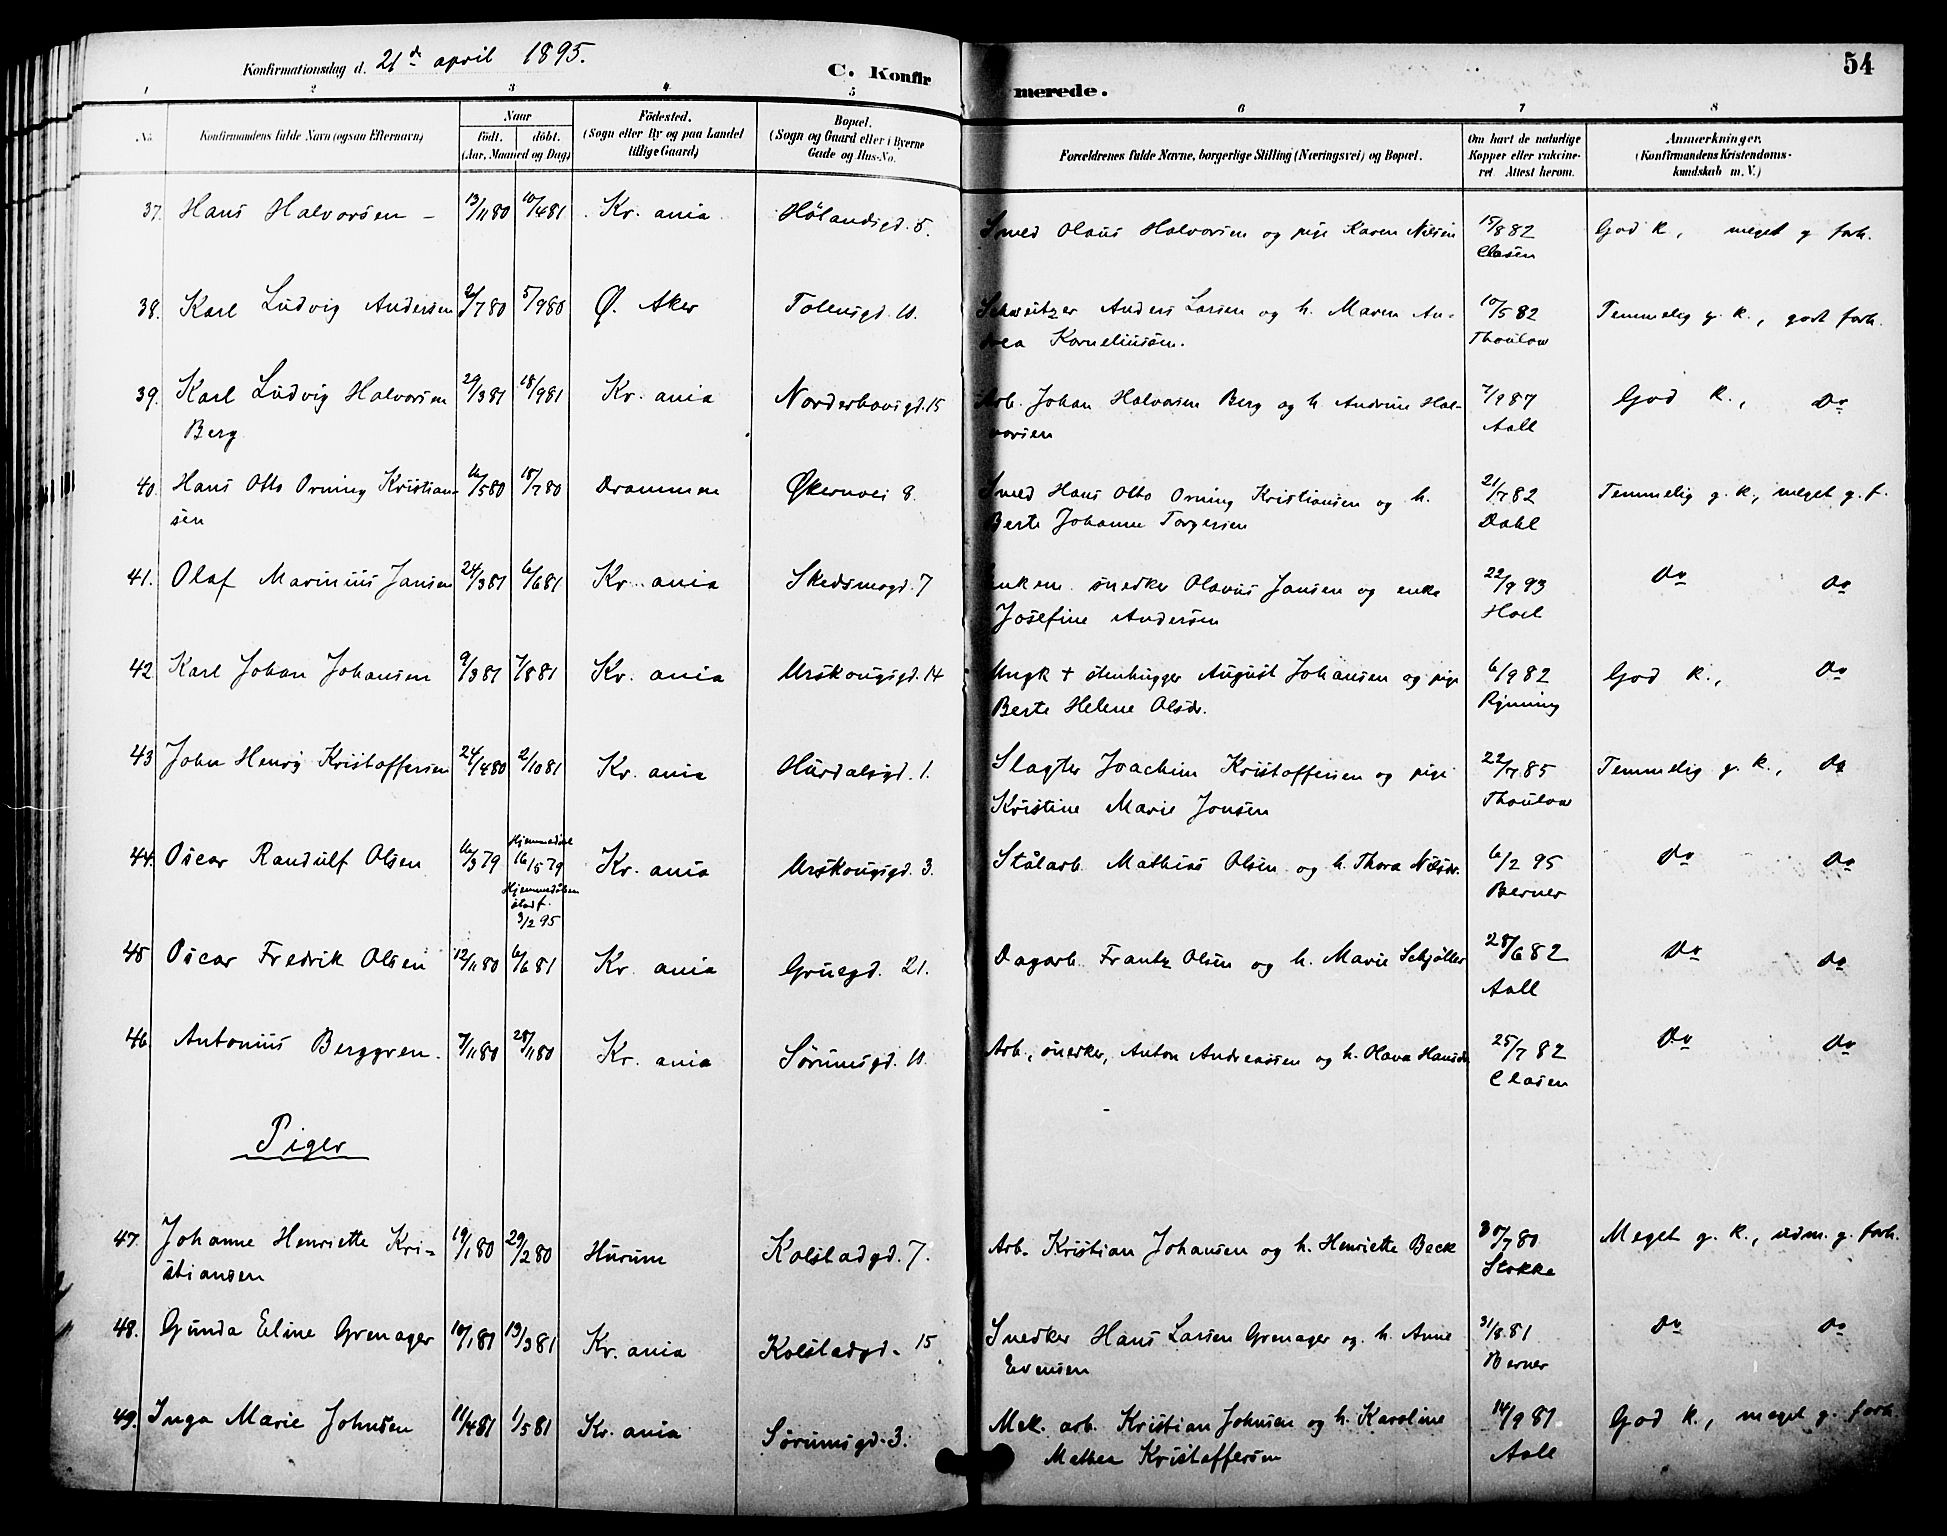 Konfirmationsdag d. 21de april 1895.
C. Konfirmerede.
54
1 2 3 4 5 6 7 8
No.
Konfirmandens fulde Navn (ogsaa Efternavn)
Naar
födt. döbt.
(Aar, Maaned og Dag)
Födested.
(Sogn eller By og paa Landet
tillige Gaard)
Bopæl.
(Sogn og Gaard eller i Byerne
Gade og Hus-No.
Forældrenes fulde Navne, borgerlige Stilling (Næringsvei) og Bopæl.
Om havt de naturlige
Kopper eller vakcine-
ret. Attest herom.
Anmærkninger.
(Konfirmandens Kristendoms-
kundskab m. V.)
37. Hans Halvorsen - 13/11 80 10/4 81 Kr.ania Hölandsgd. 5. Smed Olaus Halvorsen og pige Karen Nilsen 15/8 82 God k., meget g. forh.
Clasen
38. Karl Ludvig Andersen 26/7 80 5/9 80 Ø. Aker Schweitzer Anders Larsen og h. Maren An- 10/5 82 Temmelig g. k., godt forh.
drea Korneliussen. Thoulow
39. Karl Ludvig Halvorsen 29/3 81 18/9 81 Kr. ania Norderhovsgd. 15 Arb. Johan Halvorsen Berg og h. Andrine Hal- 7/9 87 God k., Do
Berg vorsen Aall
40. Hans Otto Orning Kristian- 16/5 80 18/7 80 Drammen Økernvei 8. Smed Hans Otto Orning Kristiansen og h. 21/7 82 Temmelig g. k., meget g. f.
sen Berte Johanne Torgersen Dahl
41. Olaf Marinius Jansen 24/3 81 6/6 81 Kr. ania Skedsmogd. 7 Enkem. snedker Olavus Jansen og enke 22/9 93 Do Do
Josefine Andersen Hoel
42 Karl Johan Johansen 9/3 81 7/8 81 Kr. ania Urskougsgd. 14 Ungk + stenhugger August Johansen og pige 6/9 82 God k., Do
Berte Helene Olsdr. Rynning
43 John Henry Kristoffersen 24/4 80 2/10 81 Kr. ania Hurdalsgd. 1. Slagter Joachim Kristoffersen og pige 22/7 85 Temmelig g. k., Do
Kristine Marie Jonsen Thoulow
44. Oscar Randulf Olsen 16/3 79 Hjemmedöbt 16/5 79 Kr. ania Urskougsgd. 3. Stålarb. Mathias Olsen og h. Thora Nilsdr. 6/2 95 Do Do
Hjemmedåben
stadf.
3/2 95 Berner
45 Oscar Fredrik Olsen 12/11 80 6/6 81 Kr. ania Gruegd. 21. Dagarb. Frantz Olsen og h. Marie Schjöller 28/6 82 Do Do
Aall
46. Antonius Berggren. 7/11 80 28/11 80 Kr. ania Sörumsgd. 11. Arb., snedker, Anton Andreassen og h. Olava Hansdr 25/7 82 Do Do
Clasen
Piger
47. Johanne Henriette Kri- 19/1 80 29/2 80 Hurum Kolstadgd. 7. Arb. Kristian Johansen og h. Henriette Beck 30/7 80 Meget g. k., udm. g. forh.
stiansen Stokke
48. Gunda Eline Grenager 10/1 81 13/3 81 Kr. ania Kolstadgd. 15 Snedker Hans Larsen Grenager og h. Anne 31/8 81 Do Do
Evensen Berner
49. Inga Marie Johnsen 11/4 81 1/5 81 Kr. ania Sörumsgd. 3. Mek. arb. Kristian Johnsen og h. Karoline 14/9 81 God k., meget g. forh.
Mathea Kristoffersen Aall